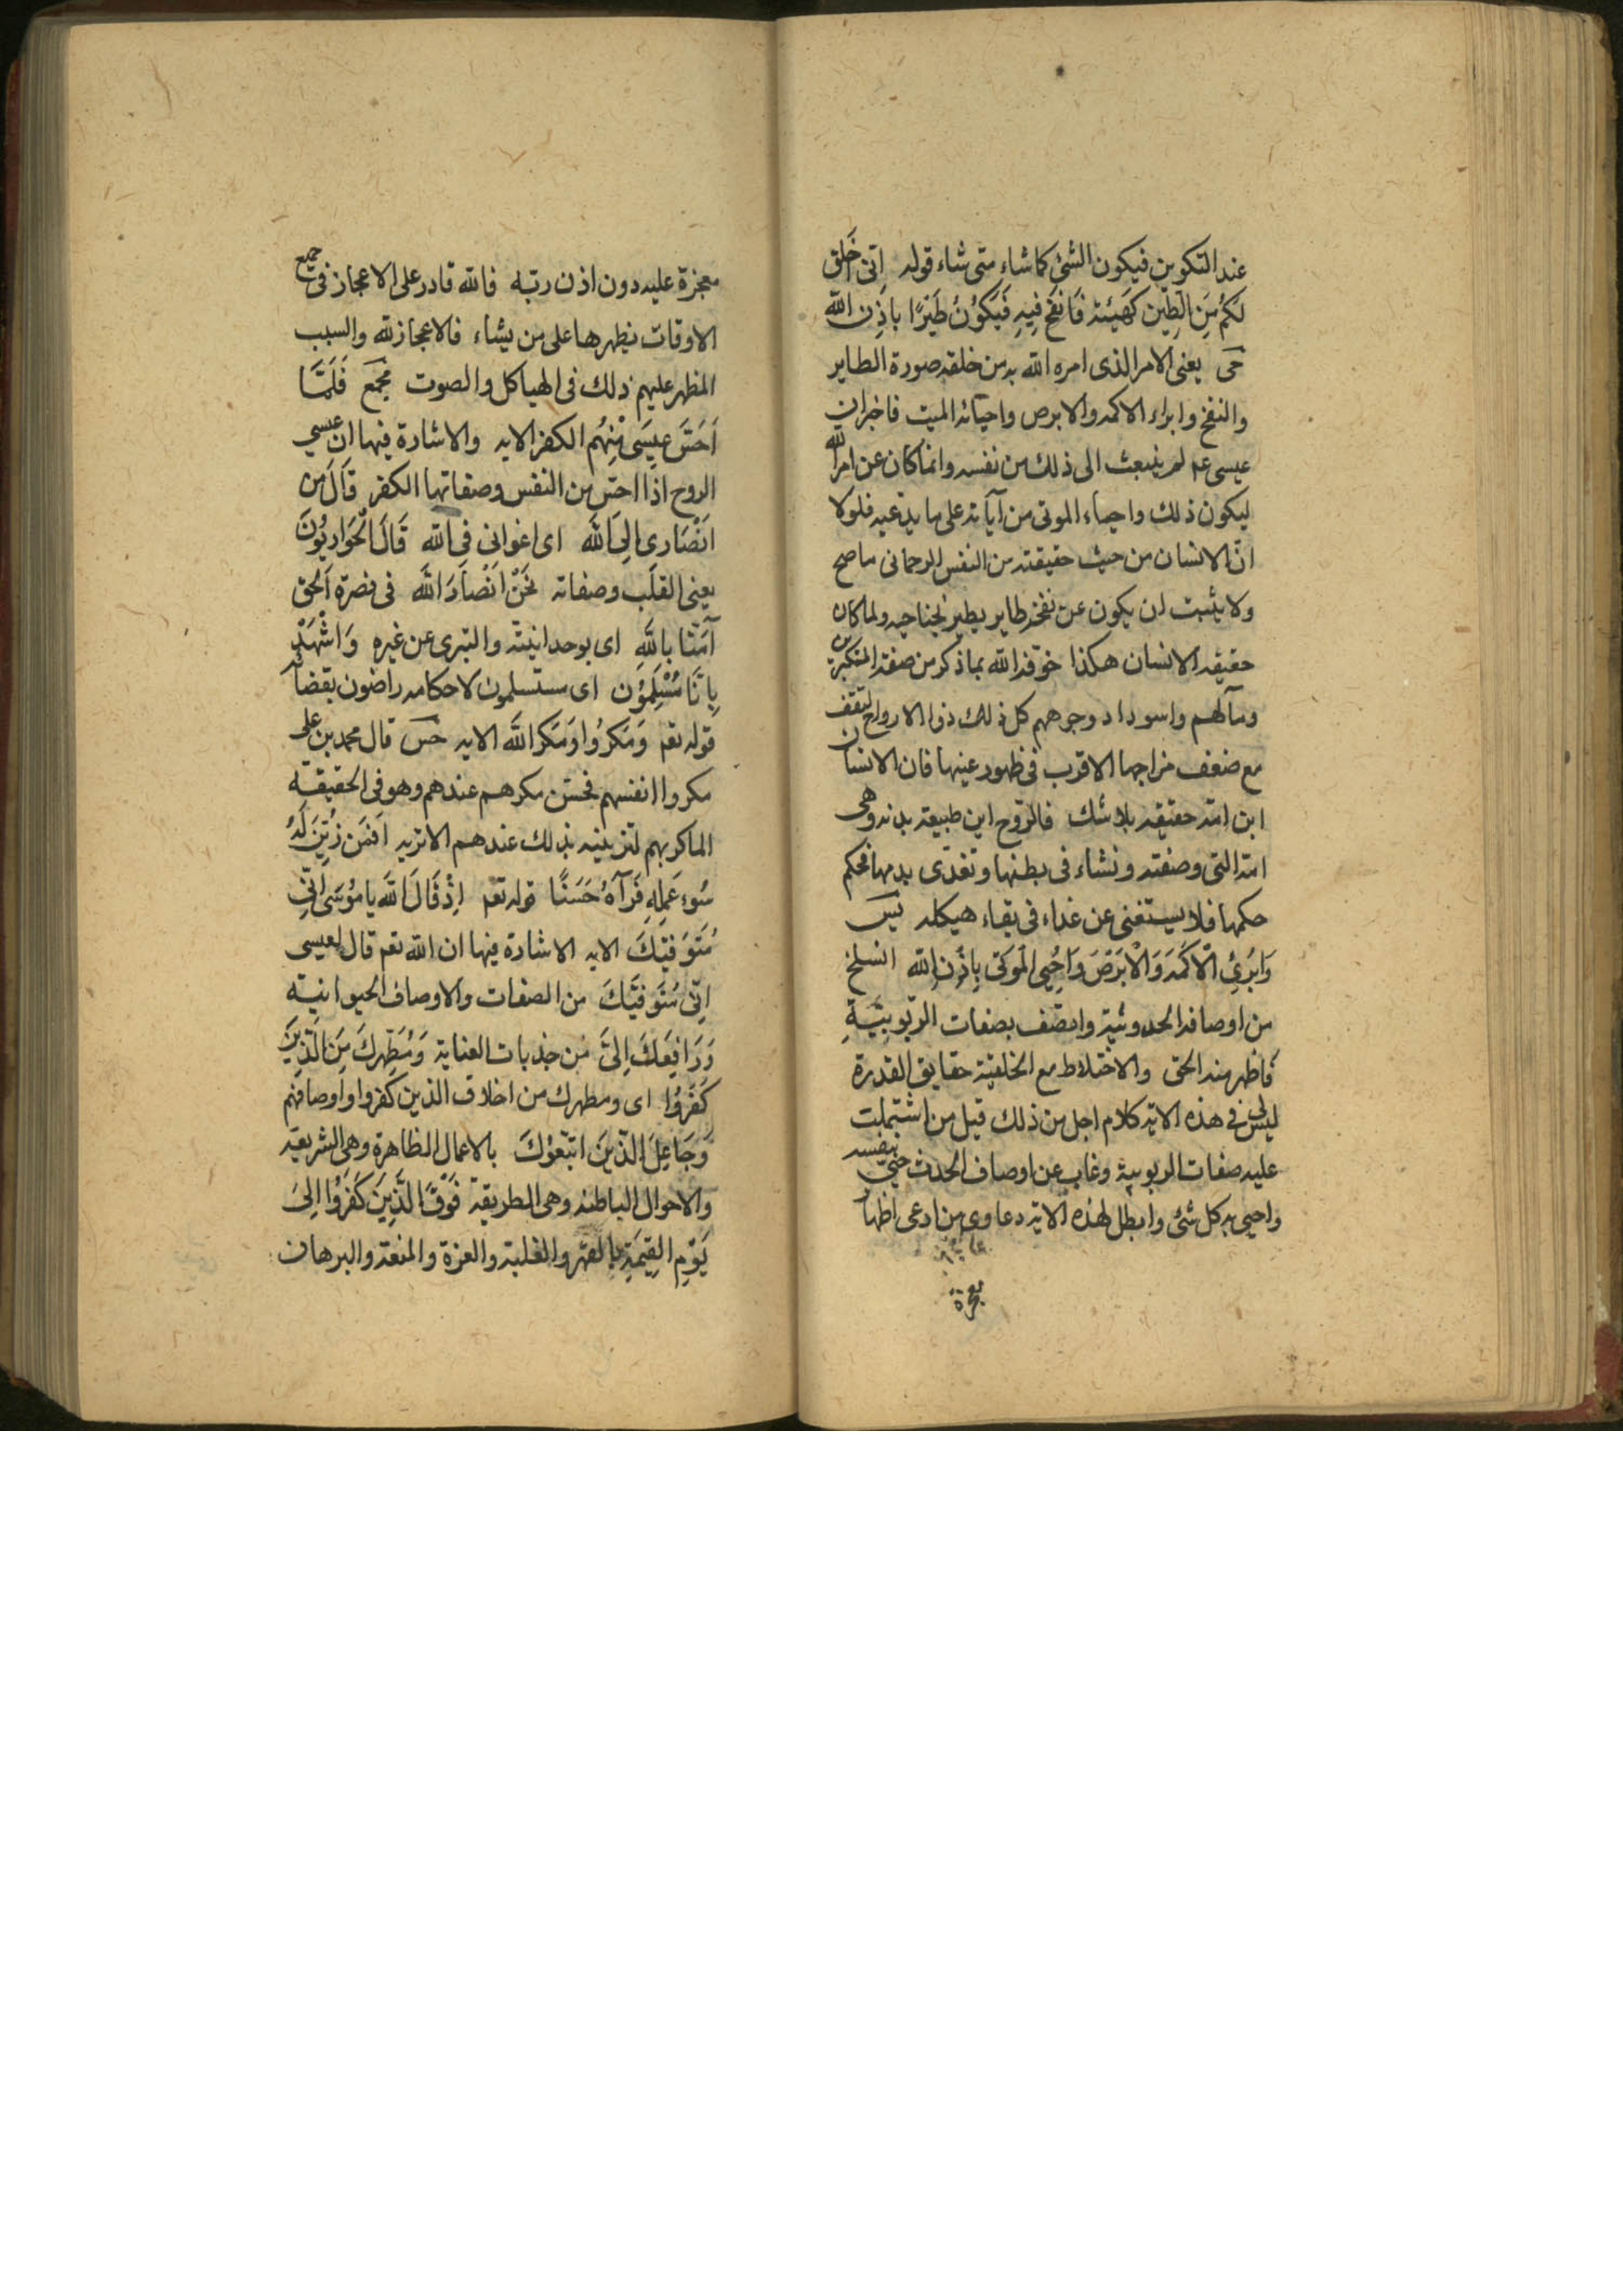 عند التكوين فيكون الشئ كما شاء متى شاء قوله اِنّى اَخلَق
لَكُم مِنَ الطِّين كَهَيئة فَانفخ فِيهِ فَيَكُونُ طَيرًا باِذنِ الله
حَى يعنى الامر الذى امره الله به من خلقه صورة الطاير
والنفخ وابراء الاكمه والابرص واحيائه الميت فاخبر ان
عيسى عم لم ينبعث الى ذلك من نفسه وانما كان عن امر الله
ليكون ذلك واحياء الموتى من آياته على ما يدعيه فلولا
انّ الانسان من حيث حقيقته من النفس الرحمانى ما صح
ولا يثبت ان يكون عن نفخه طاير يطير بجناحيه ولما كان
حقيقه الانسان هكذا خوّفه الله بما ذكر من صفة المتكبرين
ومآلهم واسوداد وجوههم كل ذلك دوا الارواح لتقف
مع ضعف مزاجها الاقرب فى ظهور عينها فان الانسان
ابن امّه حقيقه بلا شك فالرّوح ابن طبيعة بدنه وهى
امّه التى وصفته ونشاء فى بطنها وتغذى بدمها فحكم
حكمها فلا يستغنى عن غذاء فى بقاء هيكله
وَابُرِئِ الاَكمَهَ وَالاَبَرَصَ وَاُحيِى المَوتى بِاِذن الله انسلخ
من اوصافه الحدوثيّة واتصّف بصفات الرّبوبيّة
فاظهر منه الحق والاختلاط مع الخلقية حقايق القدرة
ليس فى هذه الاية كلام اجل من ذلك قيل من اشتملت
عليه صفات الربوبية وغاب عن اوصاف الحدث حيى بنفسه
واحيى به كل شئ وابطل بهذه الاية دعاوى من ادعى اظهار
معجزة
معجزة عليه دون اذن ربّه فالله قادر على الاعجاز فى جميع
الاوقات يظهرها على من يشاء فالاعجاز لله والسبب
المظهر عليهم ذلك فى الهياكل والصوت مجمع فَلَمّا
اَحَسَّ عِيسَى مِنهُم الكفر الايه والاشارة فيها ان عيسى
الروح اذا احسّ من النفس وصفاتها الكفر قَالَ مَن
اَنصَارِى اِلىَ الله اى اعوانى فى الله قَالَ الحَوَارِيُّونَ
يعنى القلب وصفاته نَحنُ اَنصَارَ الله فى نصرة الحق
آمَنّا باِللهِ اى بوحدانيّته والتبرى عن غيره وَاشهَد
بِاَنّا مُسلِمُون اى مستسلمون لاحكامه راضون بقضائه
قوله تعم وَمَكَرُوا وَمَكَرَ الله الايه حس قال محمد بن على
مكروا انفسهم فحسّن مكرهم عندهم وهو فى الحقيقة
الماكر بهم لتزيينه ذلك عندهم الا تريه اَفَمَن زُيِّنَ لَهُ
سُوءِ عَمَلِهِ فَرَآهُ حَسَنًا قوله تعم اِذ قَالَ الله يا مُوسَى اِنّى
مُتَوَفّيكَ الايه الاشارة فيها ان الله تعم قال لعيسى
اِنّى مُتَوَفيّكَ من الصفات والاوصاف الحيوانية
وَرَافِعَكَ اِلىَّ من جذبات العناية وَمُطَهِّرِكَ مِنَ الَّذِينَ
كَفَرُوا اى ومطهرك من اخلاق الذين كفروا واوصافهم
وَجَاعِلَ الّذينَ اتبَّعُوكَ بالاعمال الظاهرة وهى الشريعة
والاحوال الباطنه وهى الطريقة فَوقَ الَّذِينَ كَفَرُوا اِلىَ
يَومِ القِيمَةِ بالقهر والغلبة والعزة والمنعة والبرهان